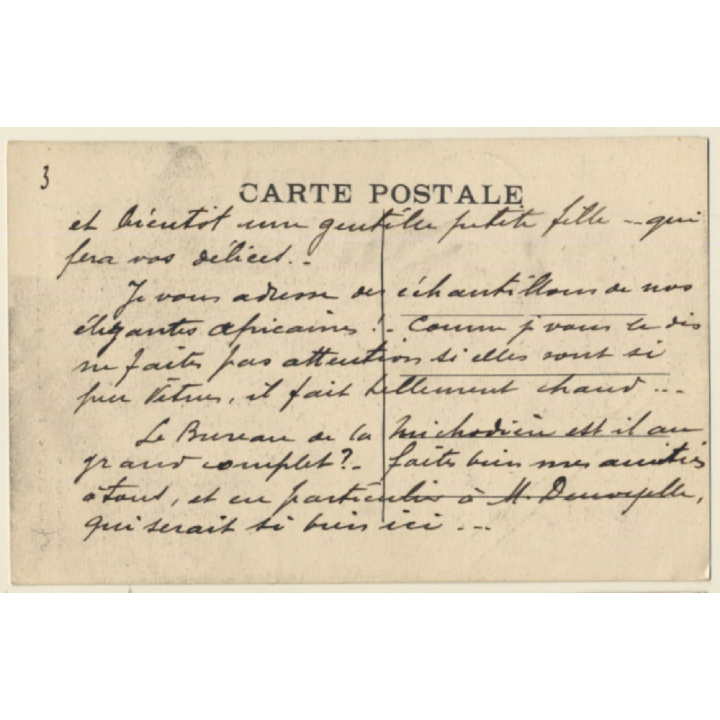 3
CARTE POSTALE
et bientôt une gentille petite fille - qui
fera vos délices. -
Je vous adresse des échantillons de nos
élégantes africaines! - Comme j vous le dis
ne faites pas attention si elles sont si
peu vêtues, il fait tellement chaud ...
Le Bureau de la Michodière est il au
grand complet? - faites bien mes amitiés
à tous, et en particulier à M.
qui serait si bien ici ...